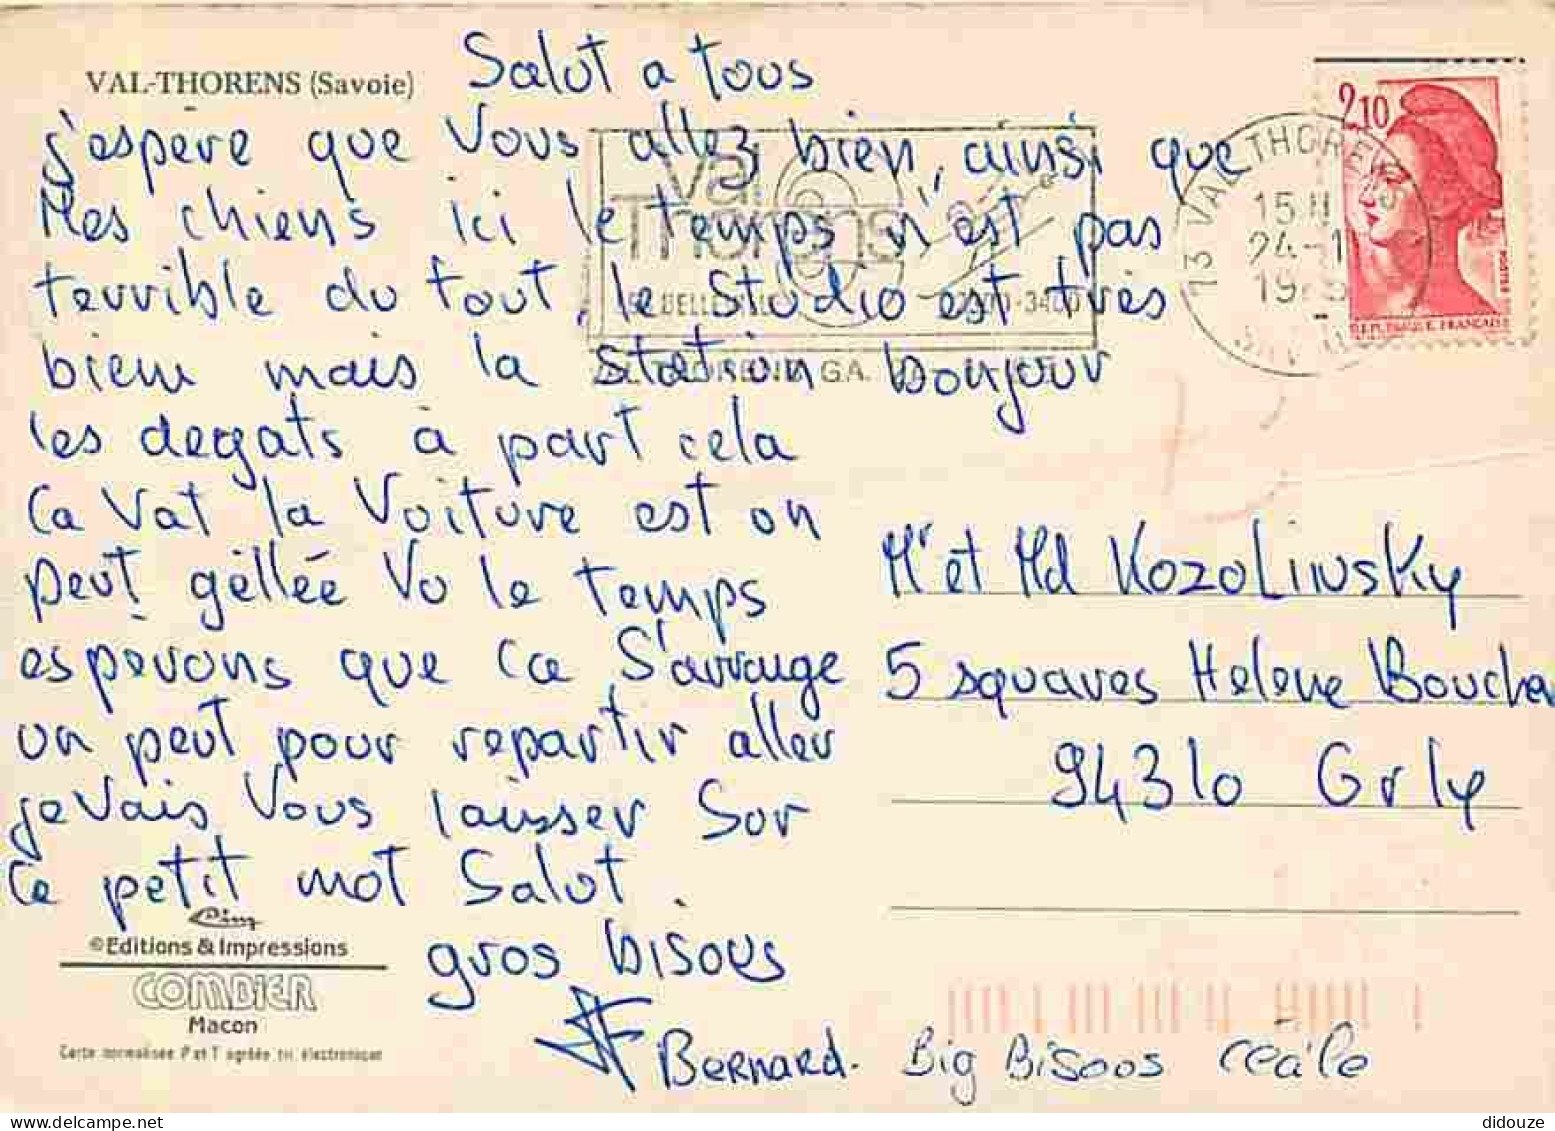 VAL-THORENS (Savoie)
Salut a tous
j'espère que Vous allez bien, ainsi que
Mes chiens ici le temps n'est pas
terrible du tout, le Studio est très
bien mais la station bonjour
les degats à part cela
Ca Vat la Voiture est on
peut gélée Vu le temps
esperons que Ca S'arrange
un peut pour repartir aller
je Vais Vous laisser Sur
Ce petit mot Salut.
gros bisous
Bernard. Big Bisous Cécile
Mr et Md Kozolinsky
5 squares Helene Boucher
94310 Orly
2,10
REPUBLIQUE FRANÇAISE
73 VAL THORENS
15 H
24-1
Val
Thorens
VAL THORENS GA.
Cim
© Editions & Impressions
COMBIER
Macon
Carte normalisée P et T agréée tri électronique
didouze